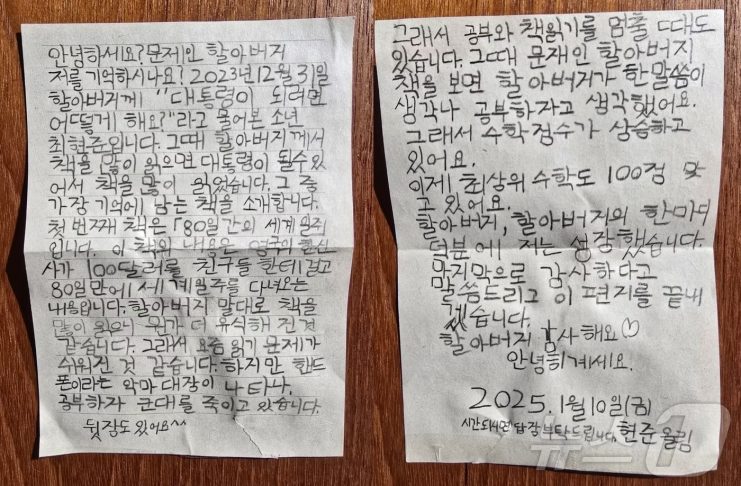 안녕하세요? 문제인 할아버지
저를 기억하시나요? 2023년 12월 31일
할아버지께 "대통령이 되려면
어떻게 해요?"라고 물어본 소년
최현준입니다. 그때 할아버지께서
책을 많이 읽으면 대통령이 될수있
어서 책을 많이 읽었습니다. 그 중
가장 기억에 남는 책을 소개합니다.
첫 번째 책은 「80일간의 세계 일주
입니다. 이 책의 내용은 영국의 한신
사가 100달러를 친구들 한테 걸고
80일만에 세계일주를 다녀오는
내용입니다. 할아버지 말대로 책을
많이 읽으니 뭔가 더 유식해 진것
같습니다. 그래서 요즘 읽기 문제가
쉬워진 것 같습니다. 하지만 핸드
폰이라는 악마 대장이 나타나,
공부하자 군대를 죽이고 있습니다.
뒷장도 있어요^^
그래서 공부와 책읽기를 멈출 때도
있습니다. 그때 문재인 할아버지
책을 보면 할아버지가 한말씀이
생각나 공부하자고 생각했어요.
그래서 수학 점수가 상승하고
있어요.
이제 최상위 수학도 100점 맞
고 있어요.
할아버지, 할아버지의 한마디
덕분에 저는 성장했습니다.
마지막으로 감사하다고
말씀드리고 이 편지를 끝내
겠습니다.
할아버지 감사해요♡
안녕히계세요.
2025. 1월 10일(금)
시간되시면 답장 부탁드립니다. 현준 올림
뉴스1